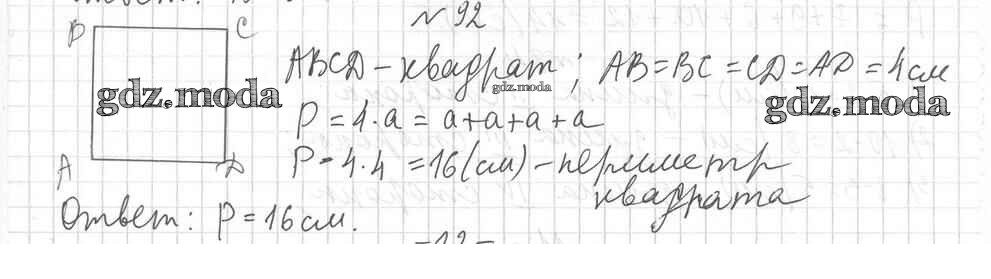 № 92
B C
ABCD – квадрат; AB = BC = CD = AD = 4 см
gdz.moda gdz.moda gdz.moda
P = 4·a = a+a+a+a
P = 4·4 = 16(см) – периметр
A D
квадрата
Ответ: P = 16 см.